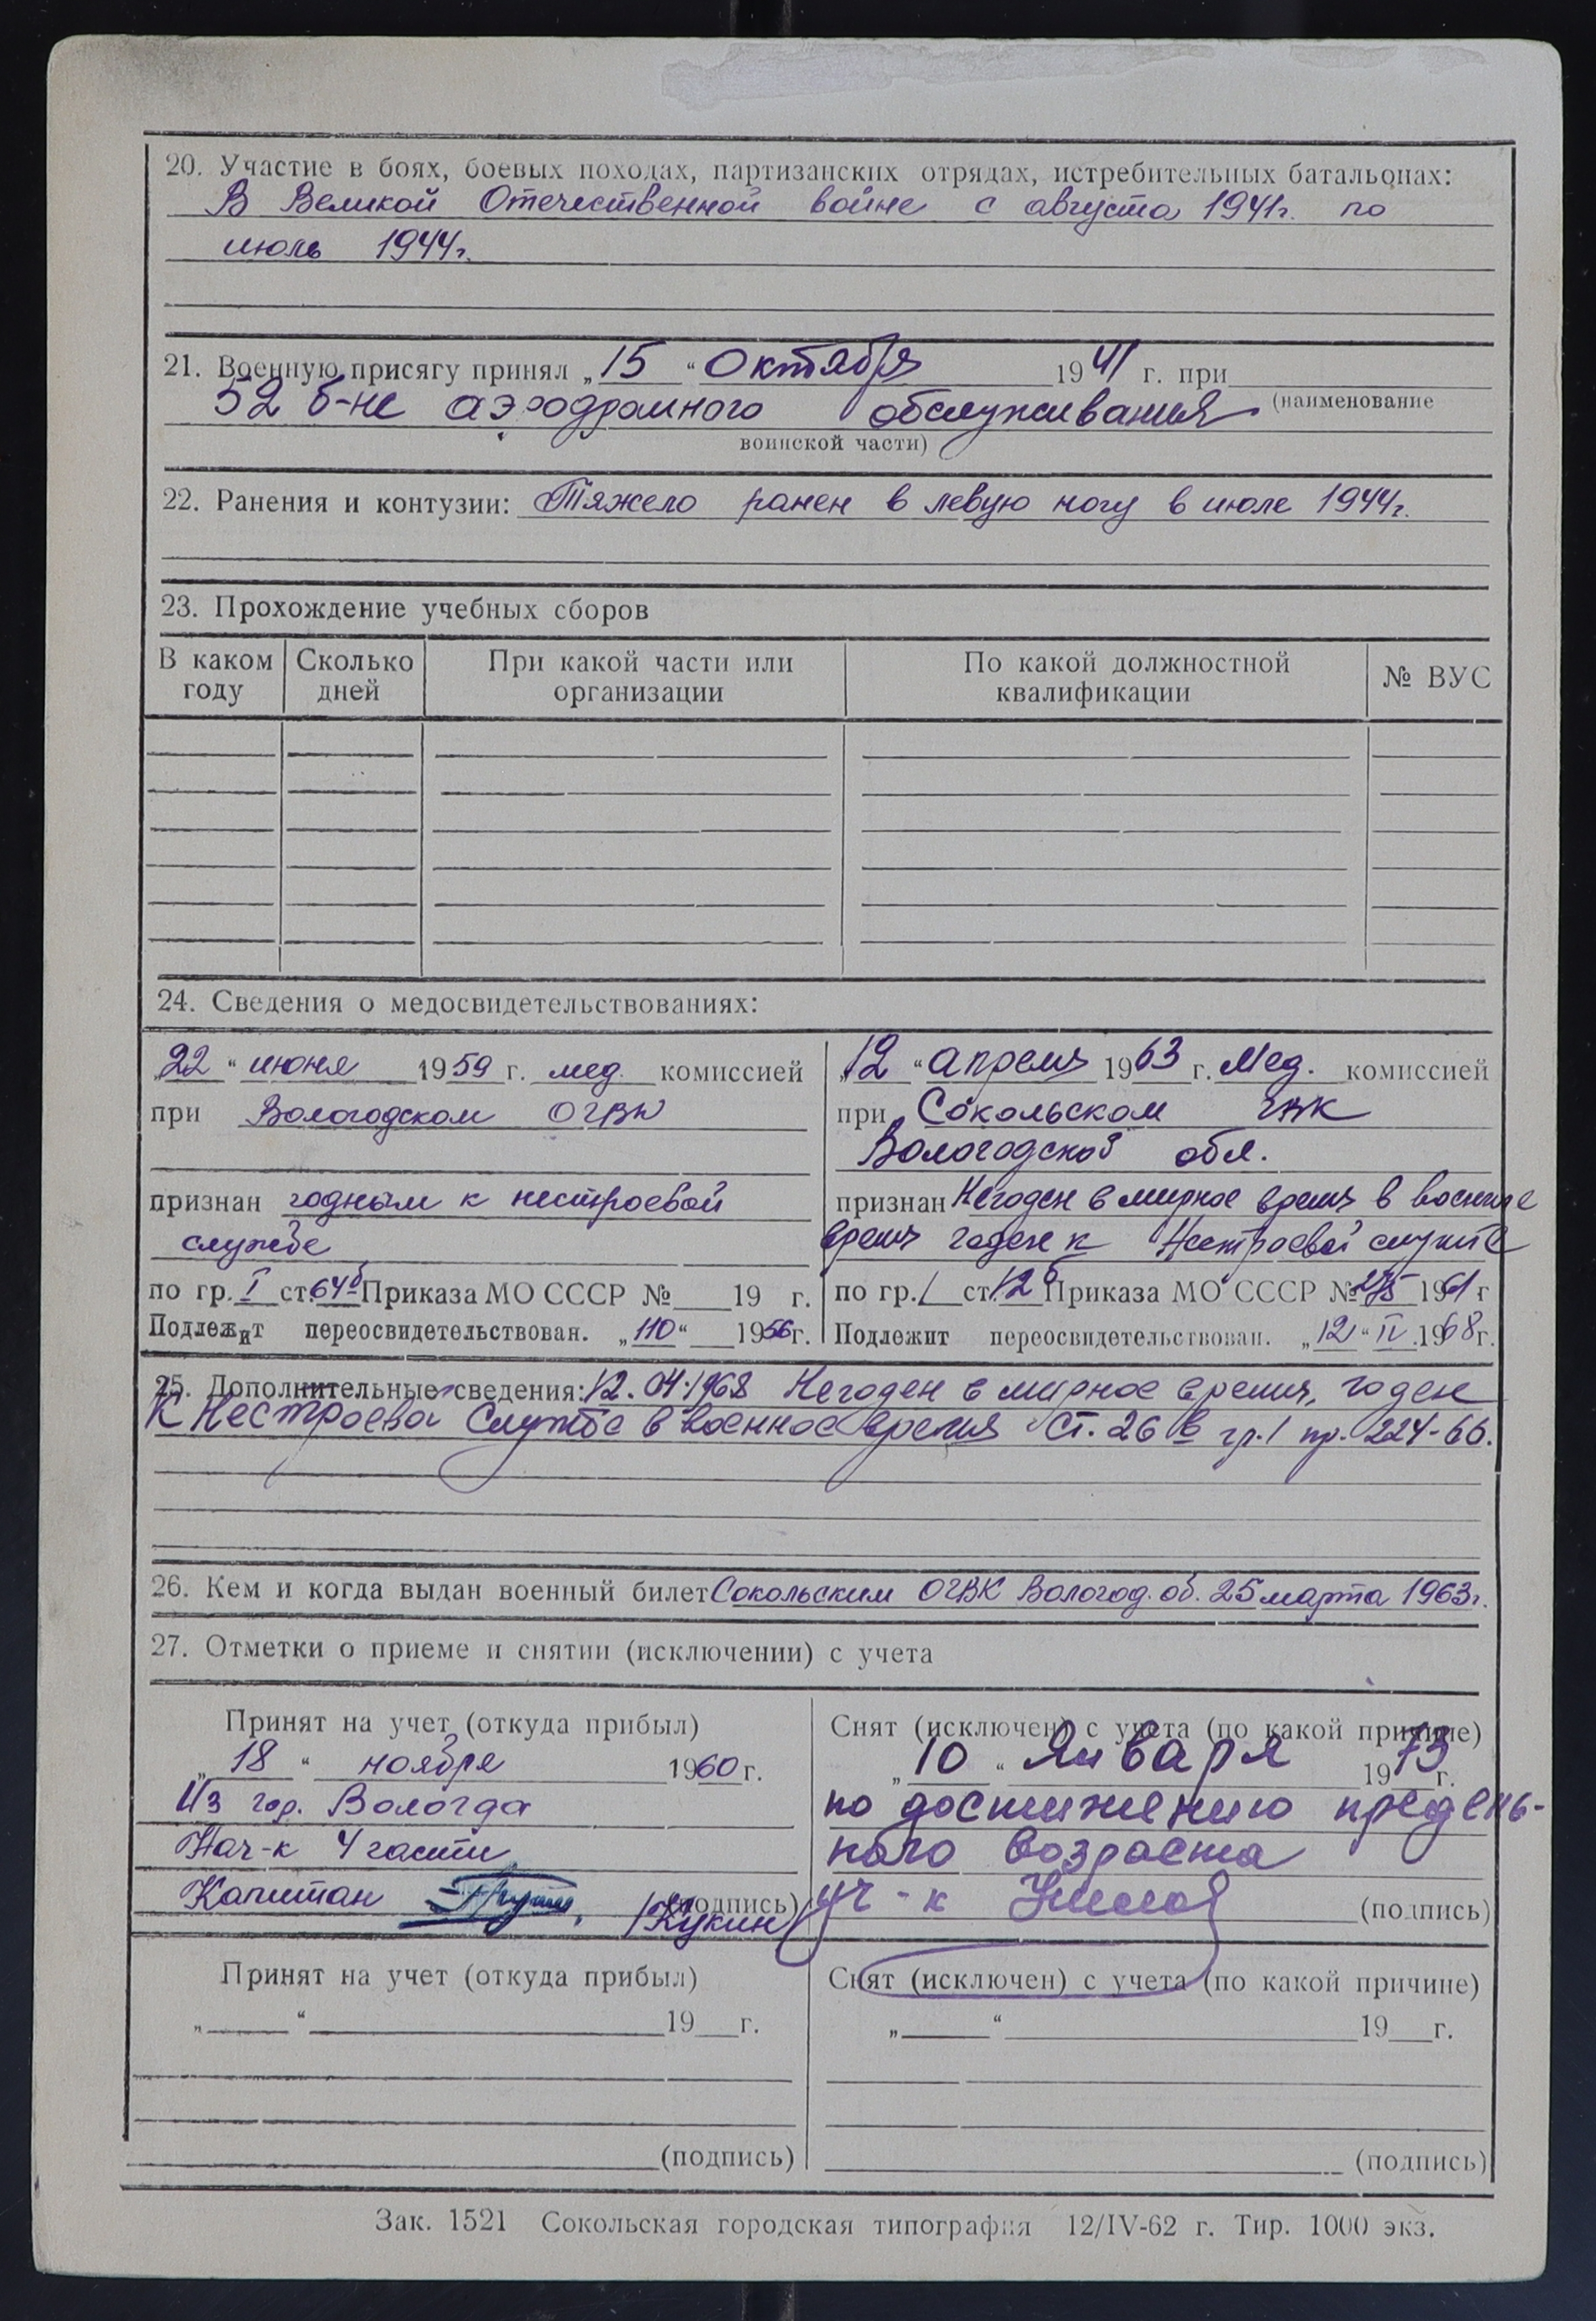 20. Участие в боях, боевых походах, партизанских отрядах, истребительных батальонах:
В Великой Отечественной войне с августа 1941г. по
июль 1944г.
21. Военную присягу принял „15“ Октября 1941 г. при
52 б-не аэродромного обслуживания (наименование
воинской части)
22. Ранения и контузии: Тяжело ранен в левую ногу в июле 1944г.
23. Прохождение учебных сборов
В каком году
Сколько дней
При какой части или организации
По какой должностной квалификации
№ ВУС
24. Сведения о медосвидетельствованиях:
„22“ июня 1959 г. мед. комиссией
при Вологодском ОГВК
признан годным к нестроевой
службе
по гр. I ст. 64б Приказа МО СССР № 19 г.
Подлежит переосвидетельствован. „110“ 1956г.
„12“ апреля 1963 г. Мед. комиссией
при Сокольском ГВК
Вологодской обл.
признан Негоден в мирное время в военное
время годен к Нестроевой службе
по гр. I ст. 12б Приказа МО СССР № 275 1961 г
Подлежит переосвидетельствован. „12“ IV.1968г.
25. Дополнительные сведения: 12.04.1968 Негоден в мирное время, годен
к Нестроевой службе в военное время ст. 26 в гр. I пр. 224-66.
26. Кем и когда выдан военный билет Сокольским ОГВК Вологод. об. 25 марта 1963г.
27. Отметки о приеме и снятии (исключении) с учета
Принят на учет (откуда прибыл)
„18“ ноября 1960 г.
Из гор. Вологда
Нач-к 4 части
Капитан (подпись)
/Кукин/
Снят (исключен) с учета (по какой причине)
„10“ Января 1973 г.
по достижению предель-
ного возраста
(подпись)
Принят на учет (откуда прибыл)
„ “ 19 г.
(подпись)
Снят (исключен) с учета (по какой причине)
„ “ 19 г.
(подпись)
Зак. 1521 Сокольская городская типография 12/IV-62 г. Тир. 1000 экз.